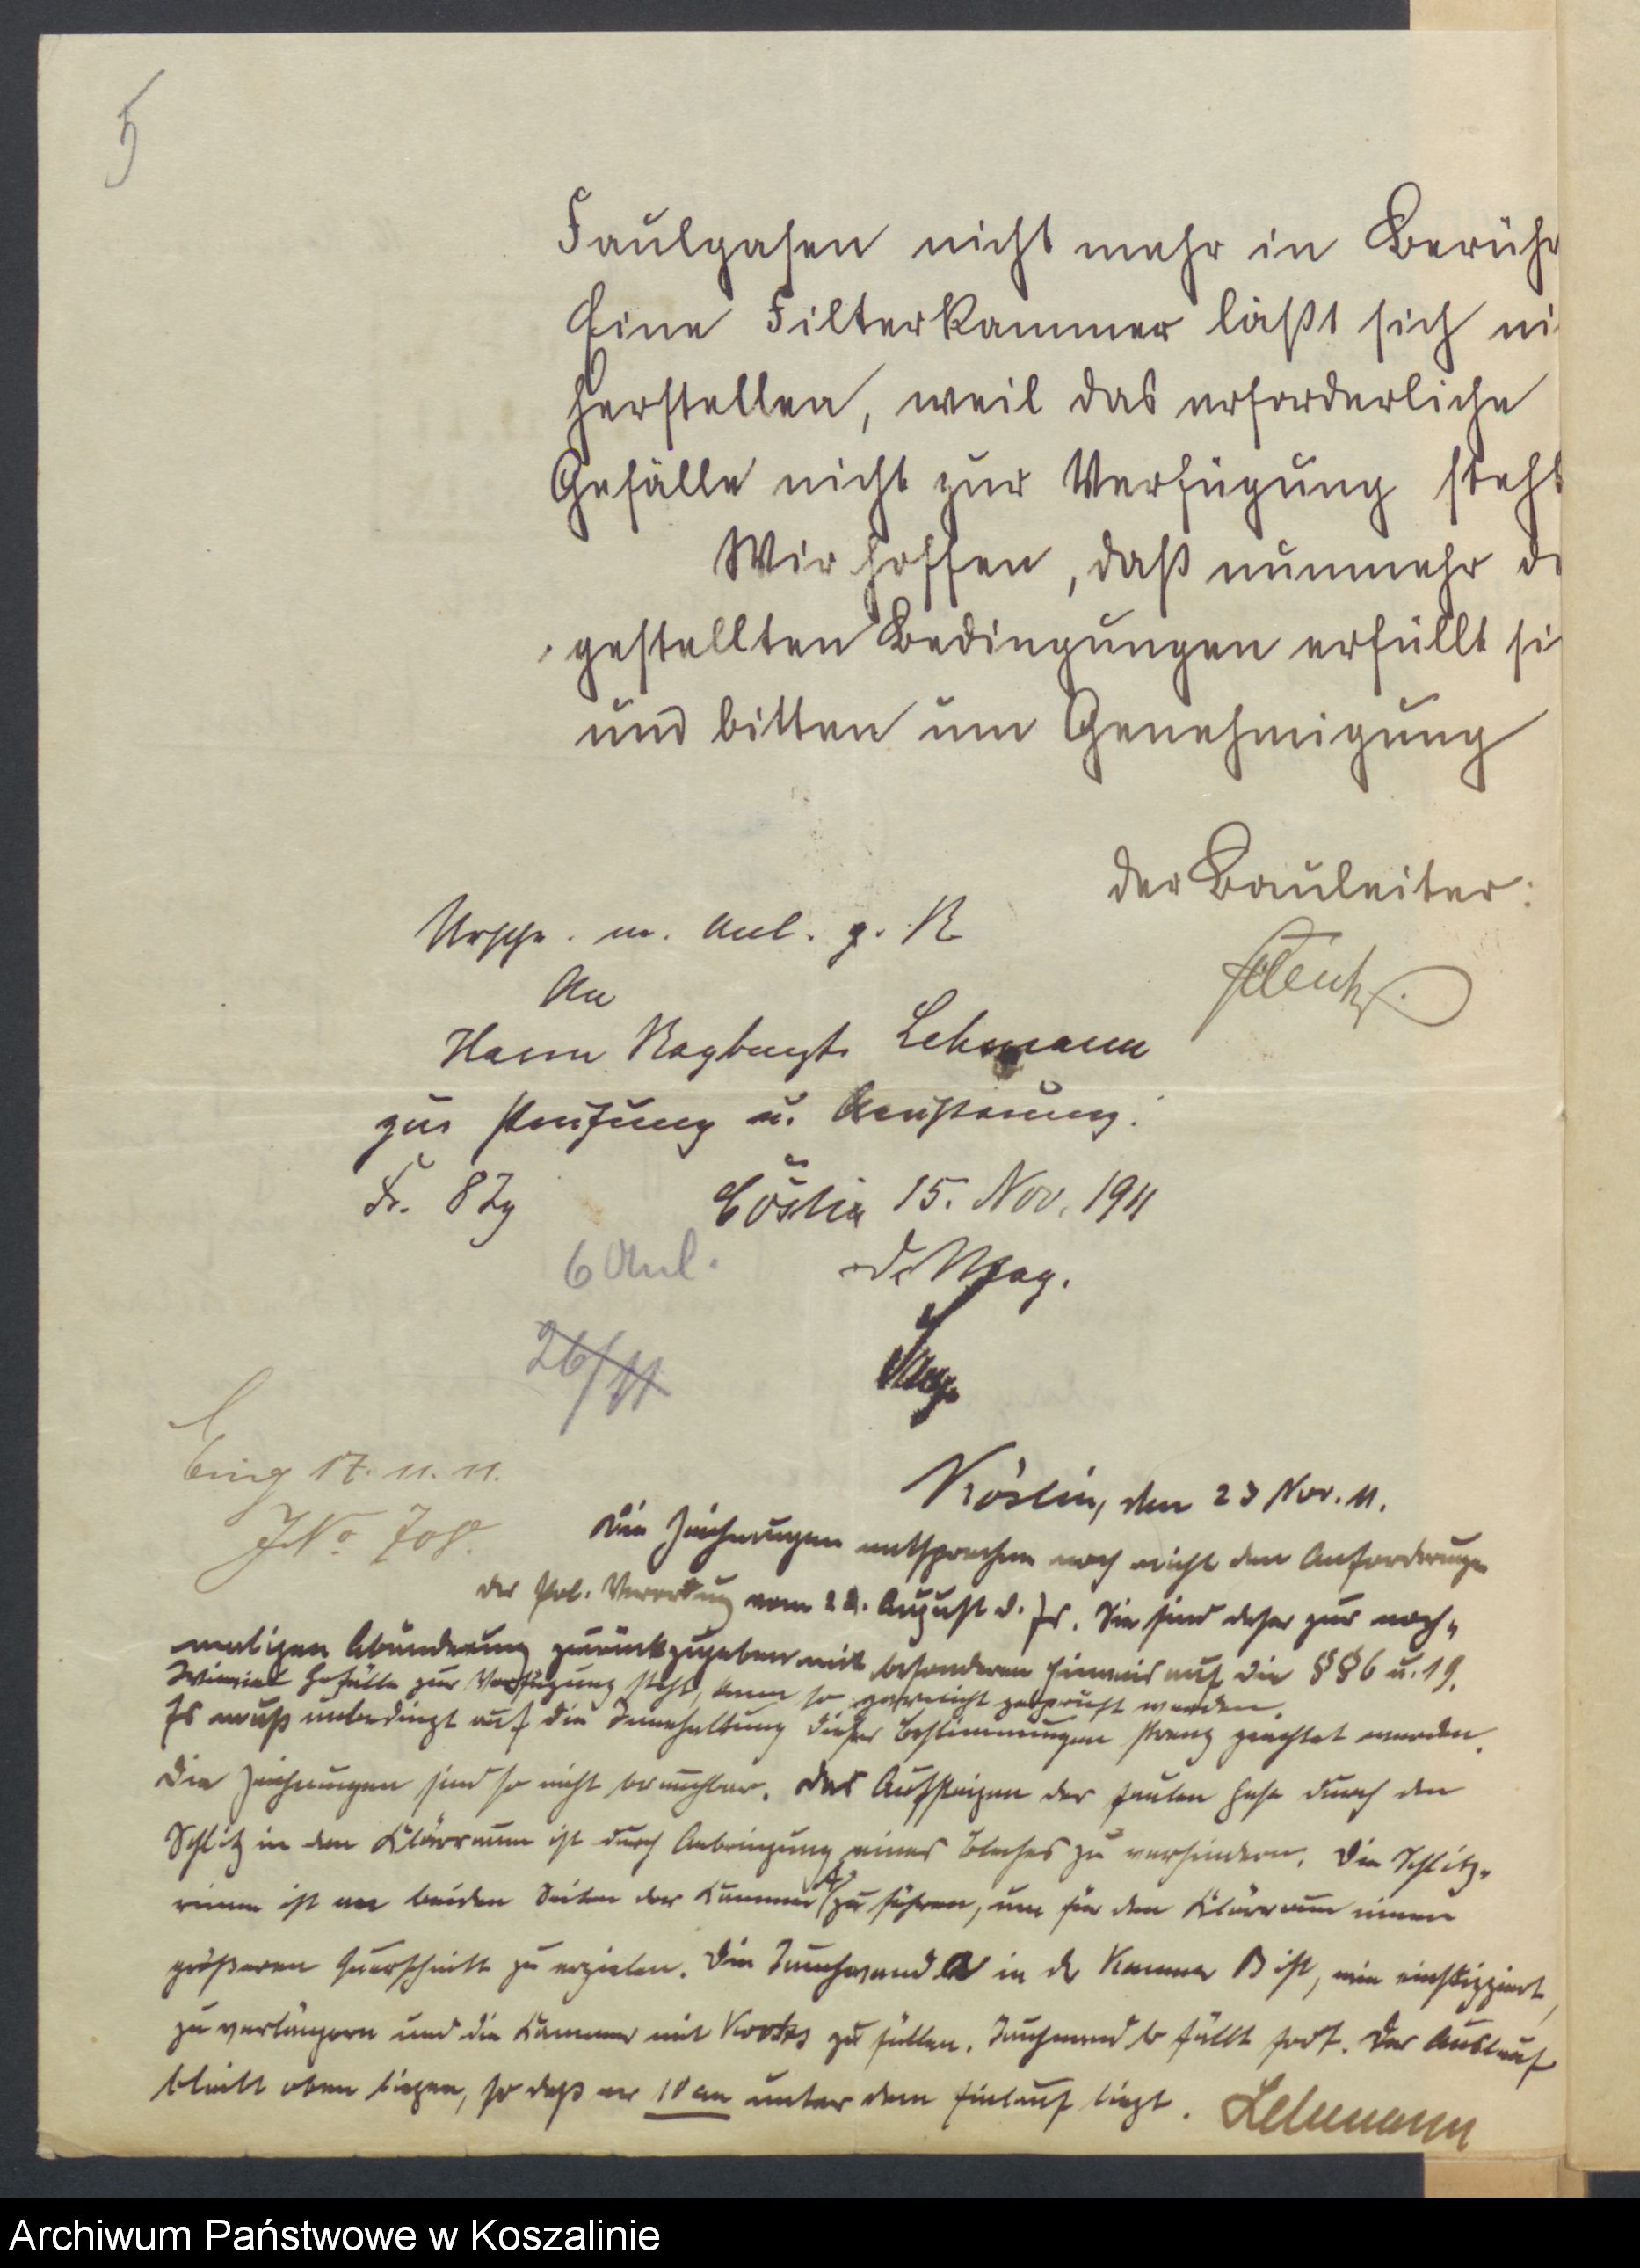 5
Faulgasen nicht mehr in Berühr
Eine Filterkammer läßt sich ni
herstellen, weil das erforderliche
Gefälle nicht zur Verfügung steht
Wir hoffen, daß nunmehr di
gestellten Bedingungen erfüllt si
und bitten um Genehmigung
der Bauleiter:
Urschr. m. Anl. g. R
An
Herrn Regbmst. Lehmann
zur Prüfung u. Aeußerung.
Fr. 8 Tg
Cöslin 15. Nov. 1911
6 Anl.
D. Mag.
26/11
Eing 17. 11. 11.
JNo 708.
Köslin, den 23 Nov. 11.
Die Zeichnungen entsprechen noch nicht den Anforderungen
der Pol. Verordnung vom 22. August d. Js. Sie sind daher zur noch-
maligen Abänderung zurückzugeben mit besonderem Hinweis auf die §§ 6 u. 19.
Wieviel Gefälle zur Verfügung steht, kann so garnicht geprüft werden.
Es muß unbedingt auf die Innehaltung dieser Bestimmungen streng geachtet werden.
Die Zeichnungen sind so nicht brauchbar. Das Aufsteigen der faulen Gase durch den
Schlitz in den Klärraum ist durch Anbringung eines Bleches zu verhindern. Die Schlitz-
rinne ist an beiden Seiten der Kammer A zu führen, um für den Klärraum einen
größeren Querschnitt zu erzielen. Die Tauchwand a in der Kammer B ist, wie einskizziert,
zu verlängern und die Kammer mit Kooks zu füllen. Tauchwand b fällt fort. Der Auslauf
bleibt oben liegen, so daß er 10 cm unter dem Einlauf liegt. Lehmann
Archiwum Państwowe w Koszalinie